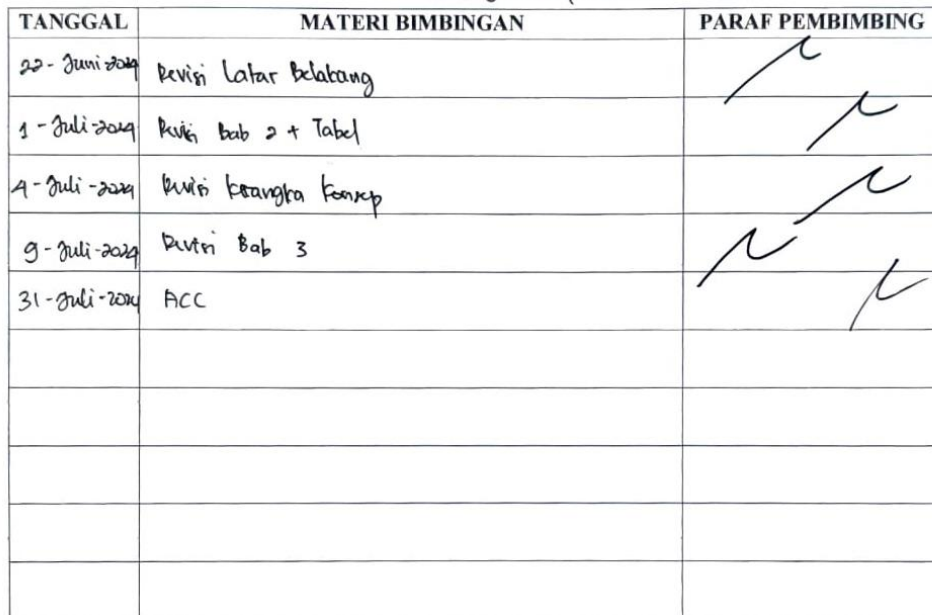 TANGGAL MATERI BIMBINGAN PARAF PEMBIMBING
22-Juni-2024 Revisi Latar Belakang
1-Juli-2024 Revisi Bab 2 + Tabel
4-Juli-2024 Revisi Kerangka Konsep
9-Juli-2024 Revisi Bab 3
31-Juli-2024 ACC